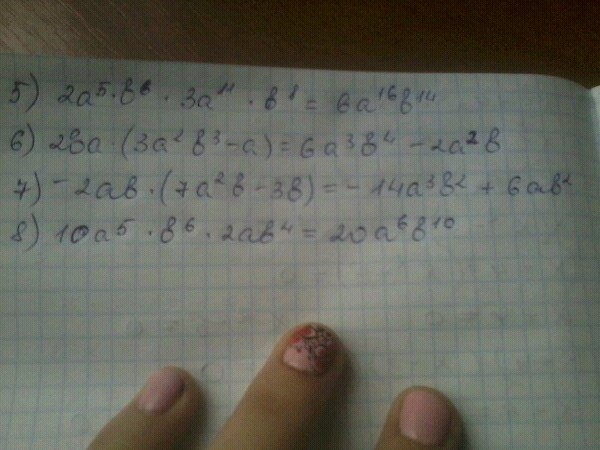 5) 2a⁵·в⁶ · 3a¹¹ · в⁸ = 6a¹⁶в¹⁴
6) 2вa · (3a²в³ - a) = 6a³в⁴ - 2a²в
7) -2aв · (7a²в - 3в) = -14a³в² + 6aв²
8) 10a⁵ · в⁶ · 2aв⁴ = 20a⁶в¹⁰